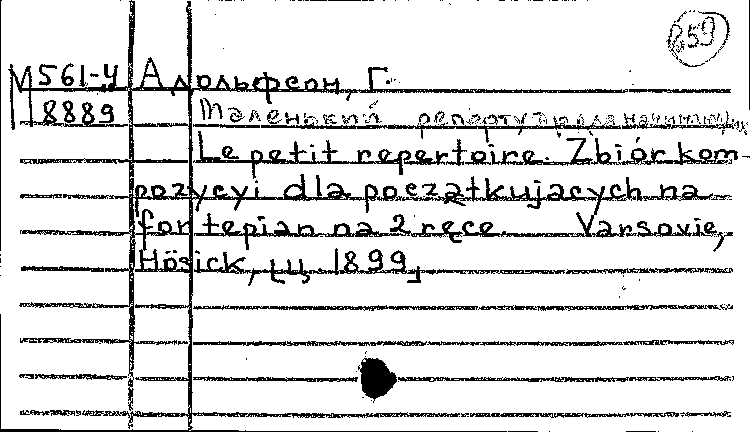 859
М 561-4 Адольфсон, Г.
8889 Маленький репертуар для начинающих
Le petit repertoire. Zbiór kom-
pozycyi dla początkujacych na
fortepian na 2 ręce. Varsovie,
Hösick, [ц. 1899]